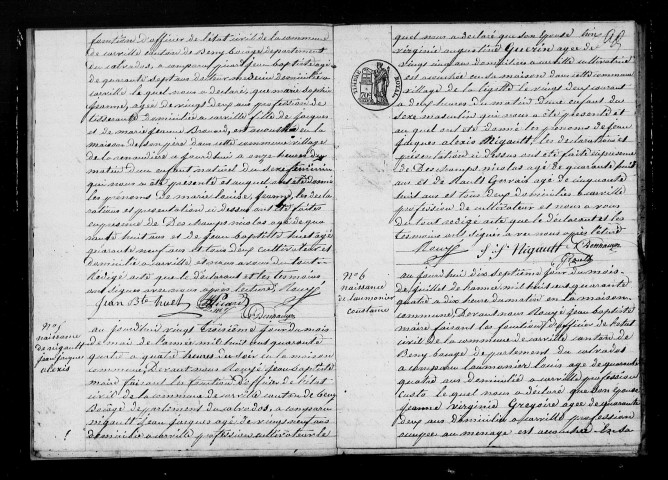 fonctions d'officier de l'état civil de la commune
de carville canton de Beny bocage departement
du calvados, a comparu Jean baptiste agé
de quarante sept ans docteur medecin domicilié a
carville le quel nous a declaré, que marie sophie
Jeanne, agée de vingt deux ans profession de
tisserante domiciliée a carville fille de Jacques
et de marie Jeanne est accouchée en la
maison de son pere dans cette commune village
de la renaudiere aujourdhui a onze heures du
matin d'un enfant naturel du sexe feminin
qui nous a été presenté et auquel ont été donné
les prénoms de marie louise, les decla
rations et presentation ci dessus ont été faites
en presence de Des champs nicolas agé de qua
rante huit ans et de Jean baptiste huet agé
quarante neuf ans et tous deux cultivateurs et
domicilié a carville et nous avons du tout
redigé acte que le declarant et les temoins
ont signés avec nous après lecture
Jean Bte huet
N° 5
naissance
de nigault
jean jacques
alexis
aujourdhui vingt troisième jour du mois
de mai de l'année mil huit cent quarante
quatre a quatre heures du soir en la maison
commune, devant nous Jean baptiste
maire faisant les fonctions d'officier de l'etat
civil de la commune de carville canton de beny
Bocage departement du calvados, a comparu
nigault Jean Jacques agé de vingt neuf ans
domicilié a carville profession cultivateur le
quel nous a declaré que son epouse
virginie augustine Guerin agée de
vingt cinq ans domiciliée a carville cultivatrice
est accouchée en sa maison dans cette commune
village de la le vingt deux courant
a deux heures du matin d'un enfant du
sexe masculin qui nous a été presenté et
au quel ont été donné les prénoms de Jean
Jaques alexis Nigault, les declarations et
presentation ci dessus ont été faite en presence
de Deschamps nicolas agé de quarante huit
ans et de Gervais agé de cinquante
huit ans et tous deux domicilié a carville
profession de cultivateur et nous avons
du tout redigé acte que le declarant et les
temoins ont signés avec nous après lecture
J. J. Nigault
N° 6
naissance
de laumonier
constance
aujourdhui dix septième jour du mois
de juillet de l'annee mil huit cent quarante
quatre a dix heure du matin en la maison
commune, Devant nous Jean baptiste
maire faisant les fonctions d'officier de l'etat
civil de la commune de carville canton de
Beny bocage departement du calvados
a comparu laumonier louis agé de quarante
quatre ans domicilié a carville profession
le quel nous a déclaré que son épouse
Jeanne virginie Gregoire agée de quarante
deux ans domiciliée a carville profession
occupée au menage est accouchée en sa